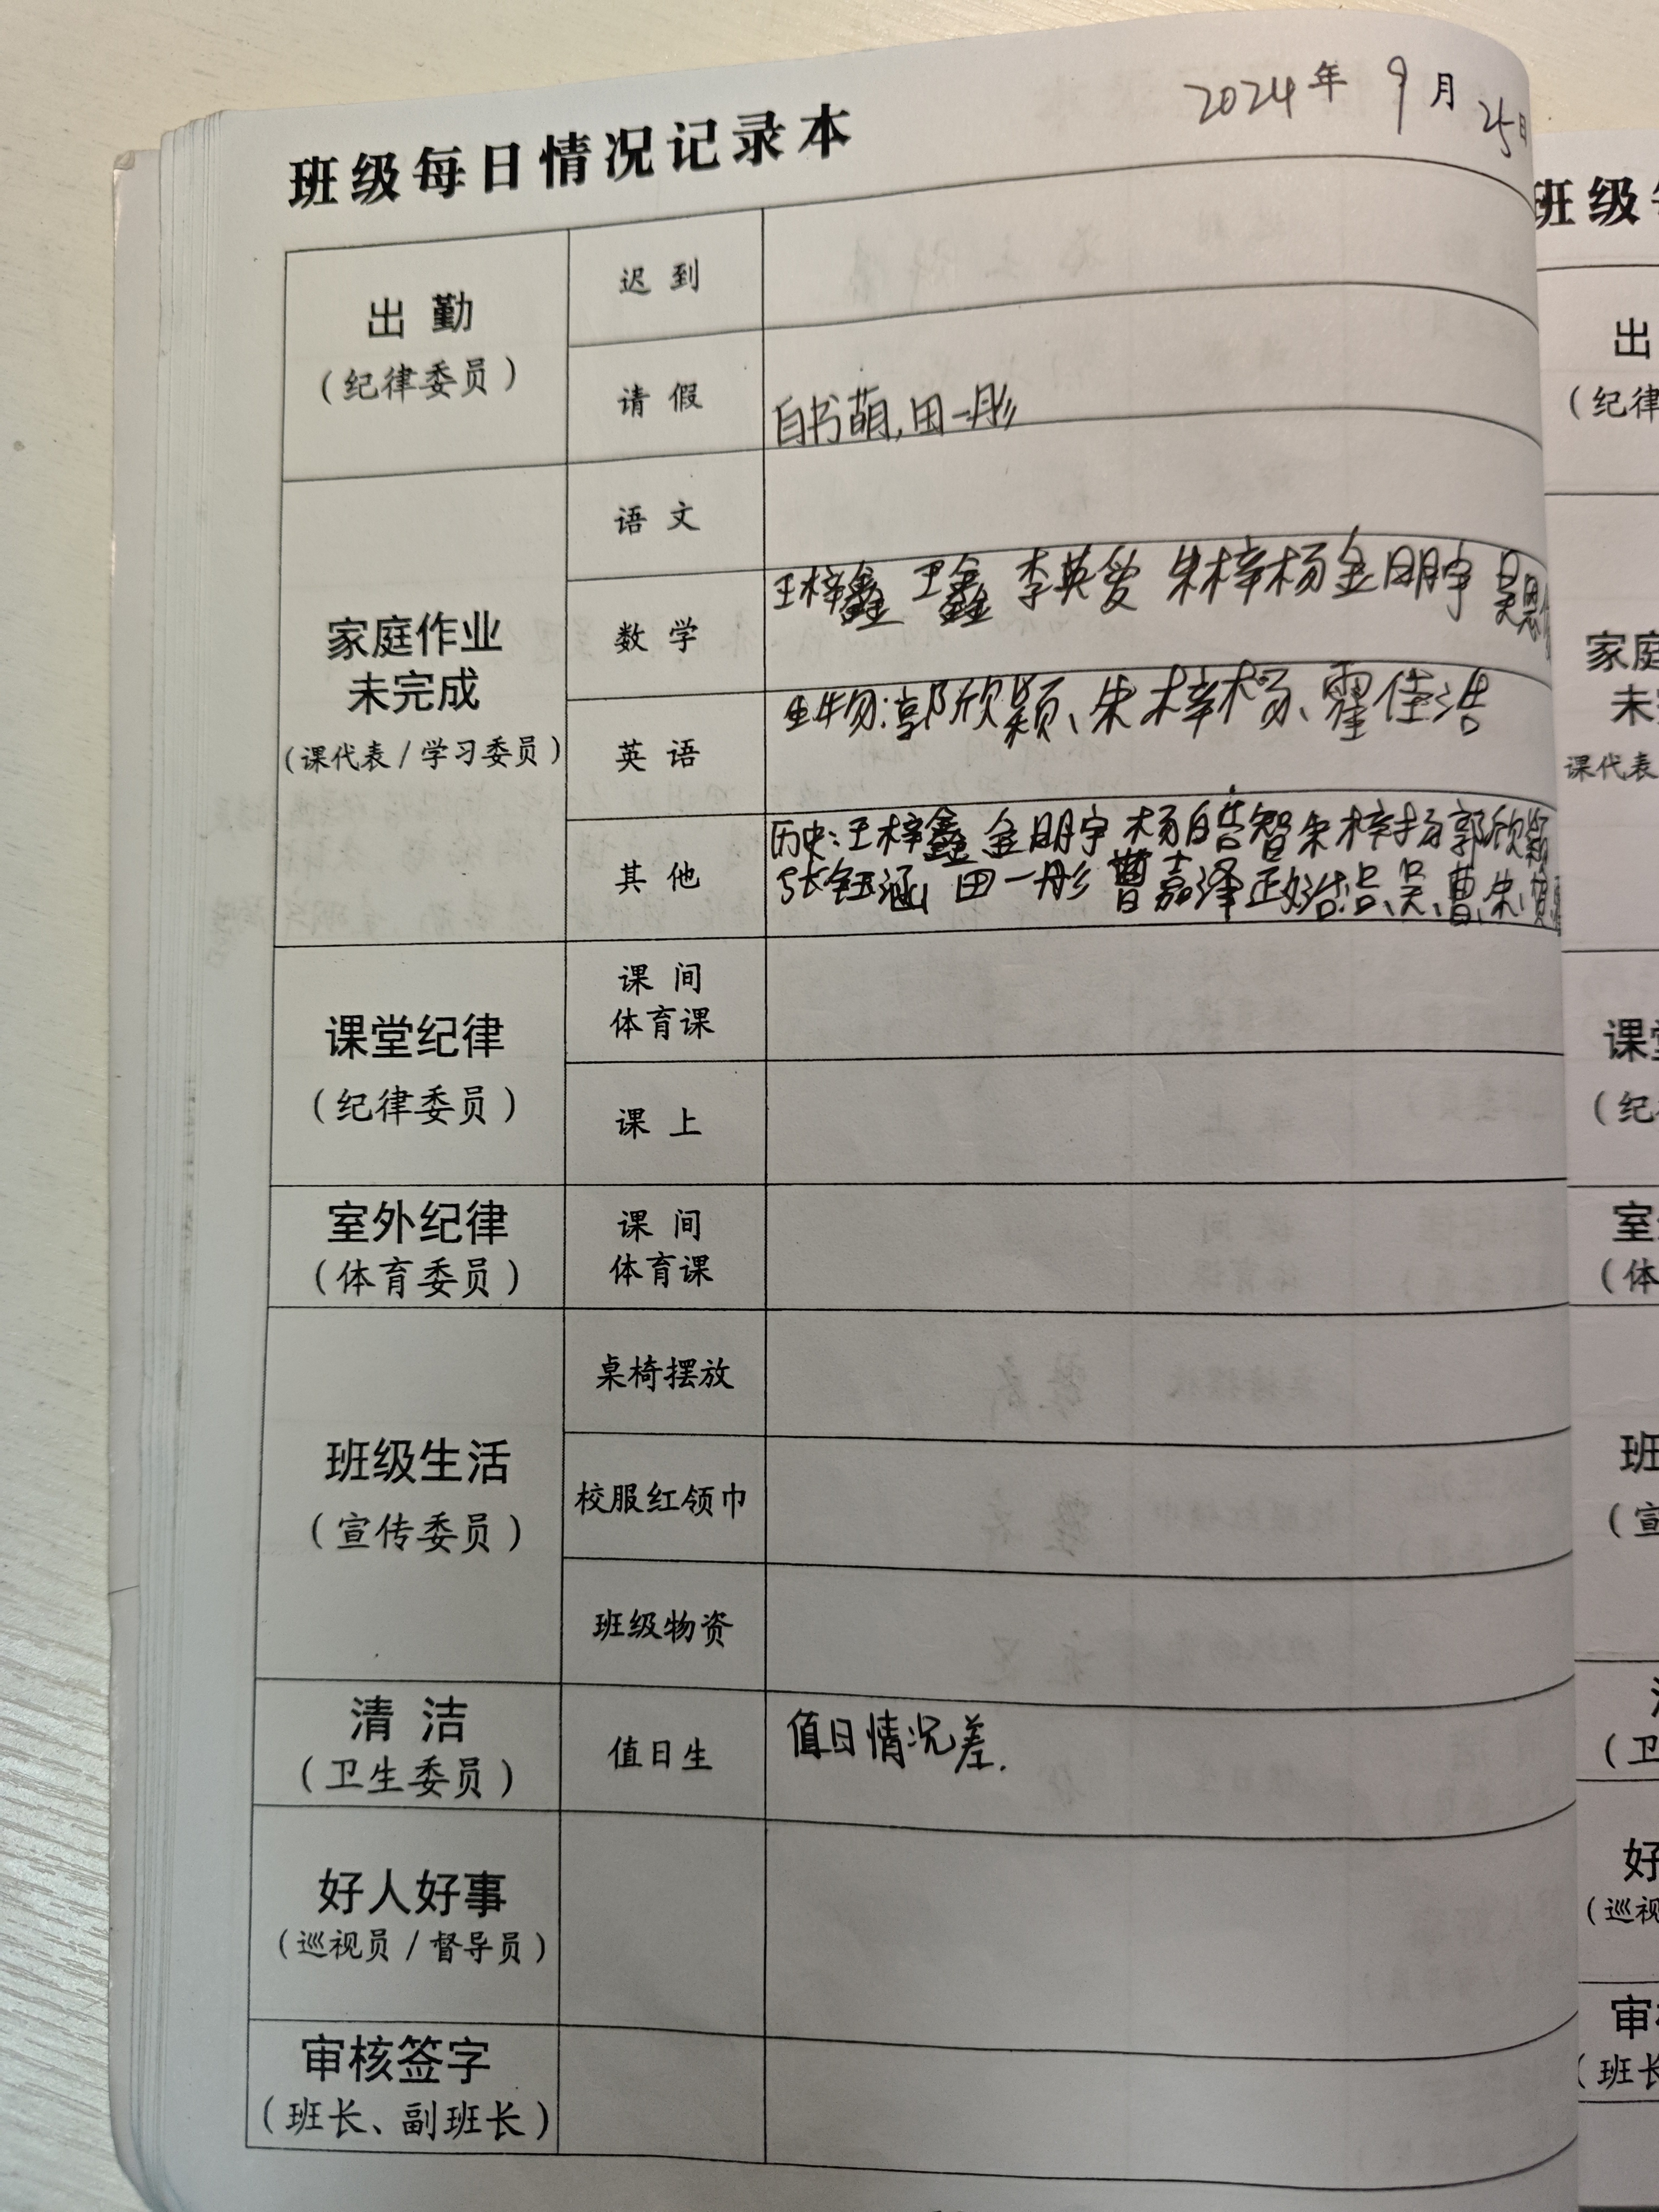 2024年 9月 25日
班级每日情况记录本
出 勤
(纪律委员)
迟 到
请 假
自书萌,田一彤
家庭作业
未完成
(课代表/学习委员)
语 文
数 学
王梓鑫 卫鑫 李英爱 朱梓杨 金明宇
英 语
生物:郭欣颖、朱梓杨、霍佳浩
其 他
历史:王梓鑫 金明宇 杨皓智 朱梓扬 郭欣颖
张钰涵 田一彤 曹嘉泽
课堂纪律
(纪律委员)
课 间
体育课
课 上
室外纪律
(体育委员)
课 间
体育课
班级生活
(宣传委员)
桌椅摆放
校服红领巾
班级物资
清 洁
(卫生委员)
值日生
值日情况差.
好人好事
(巡视员/督导员)
审核签字
(班长、副班长)
班级
出
(纪律
家庭
课代表
课堂
(纪
室
(体
班
(宣
(卫
好
(巡视
审
(班长